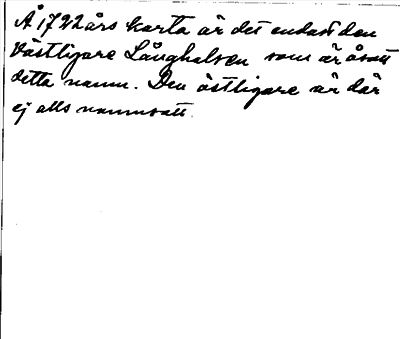 Å 1722 års karta är det endast den
västligare Långhalsen som är åsatt
detta namn. Den östligare är där
ej alls namnsatt.